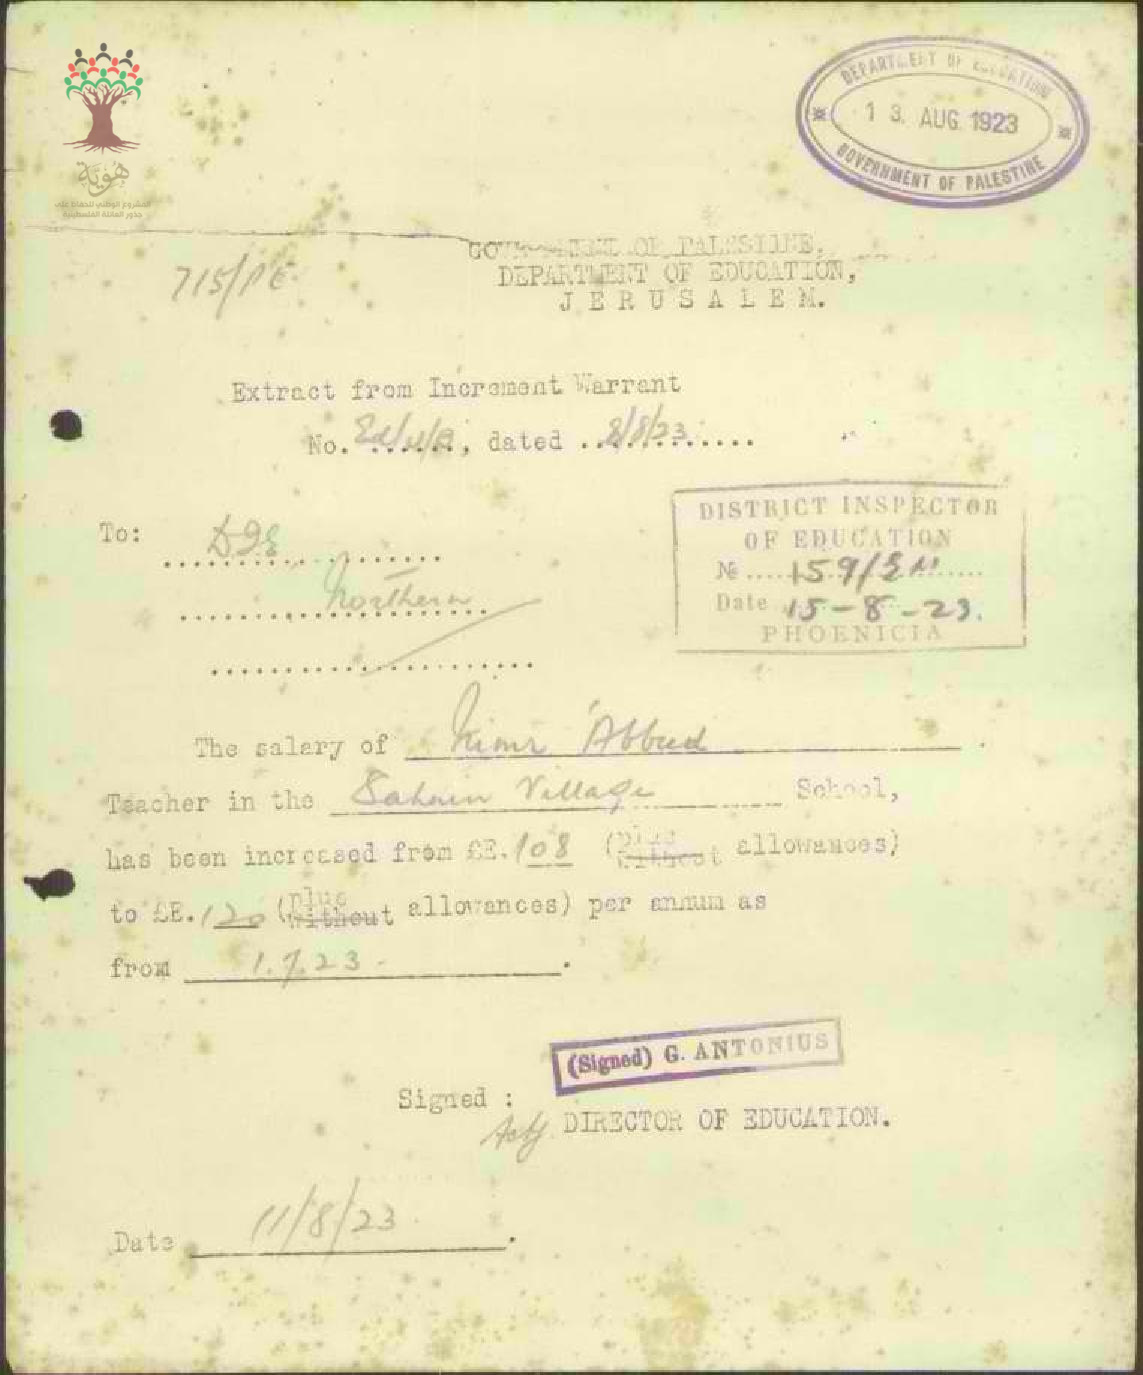 هوية
المشروع الوطني للحفاظ على
جذور العائلة الفلسطينية
DEPARTMENT OF EDUCATION
13. AUG. 1923
GOVERNMENT OF PALESTINE
715/PE
GOVERNMENT OF PALESTINE,
DEPARTMENT OF EDUCATION,
JERUSALEM.
Extract from Increment Warrant
No. ......, dated ..8/8/23......
To: DIE
Northern
DISTRICT INSPECTOR
OF EDUCATION
No .....159/
Date 15-8-23.
PHOENICIA
The salary of Nimr 'Abbud.
Teacher in the Sahnin Village School,
has been increased from £E.108 (plus without allowances)
to £E.120 (plus without allowances) per annum as
from 1.7.23.
(Signed) G. ANTONIUS
Signed :
Actg. DIRECTOR OF EDUCATION.
Date 11/8/23.